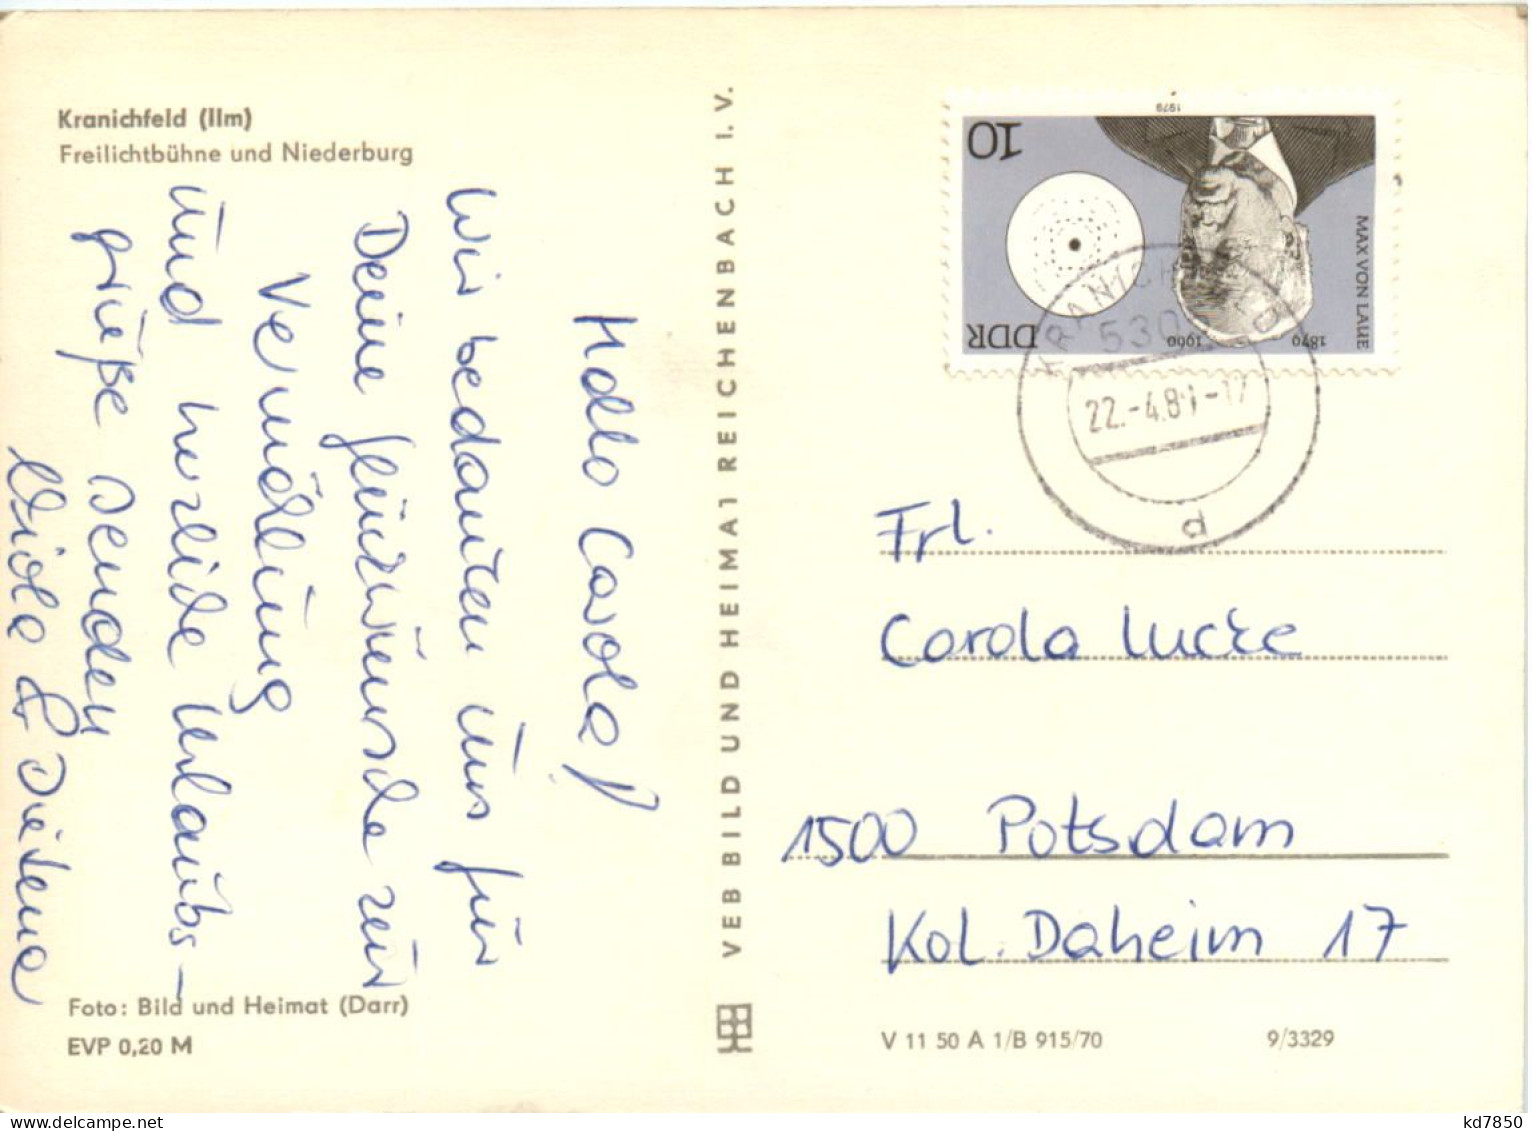 Kranichfeld (Ilm)
Freilichtbühne und Niederburg
Hallo Carola!
Wir bedanken uns für
Deine Glückwünsche zur
Vermählung
und herzliche Urlaubs-
grüße senden
Viola & Dietmar
Foto: Bild und Heimat (Darr)
EVP 0,20 M
VEB BILD UND HEIMAT REICHENBACH I. V.
10
DDR
MAX VON LAUE
1879 1960
1979
KRANICHFELD
530
22.-4.81-17
d
Frl.
Carola Lucke
1500 Potsdam
Kol. Daheim 17
V 11 50 A 1/B 915/70
9/3329
kd7850